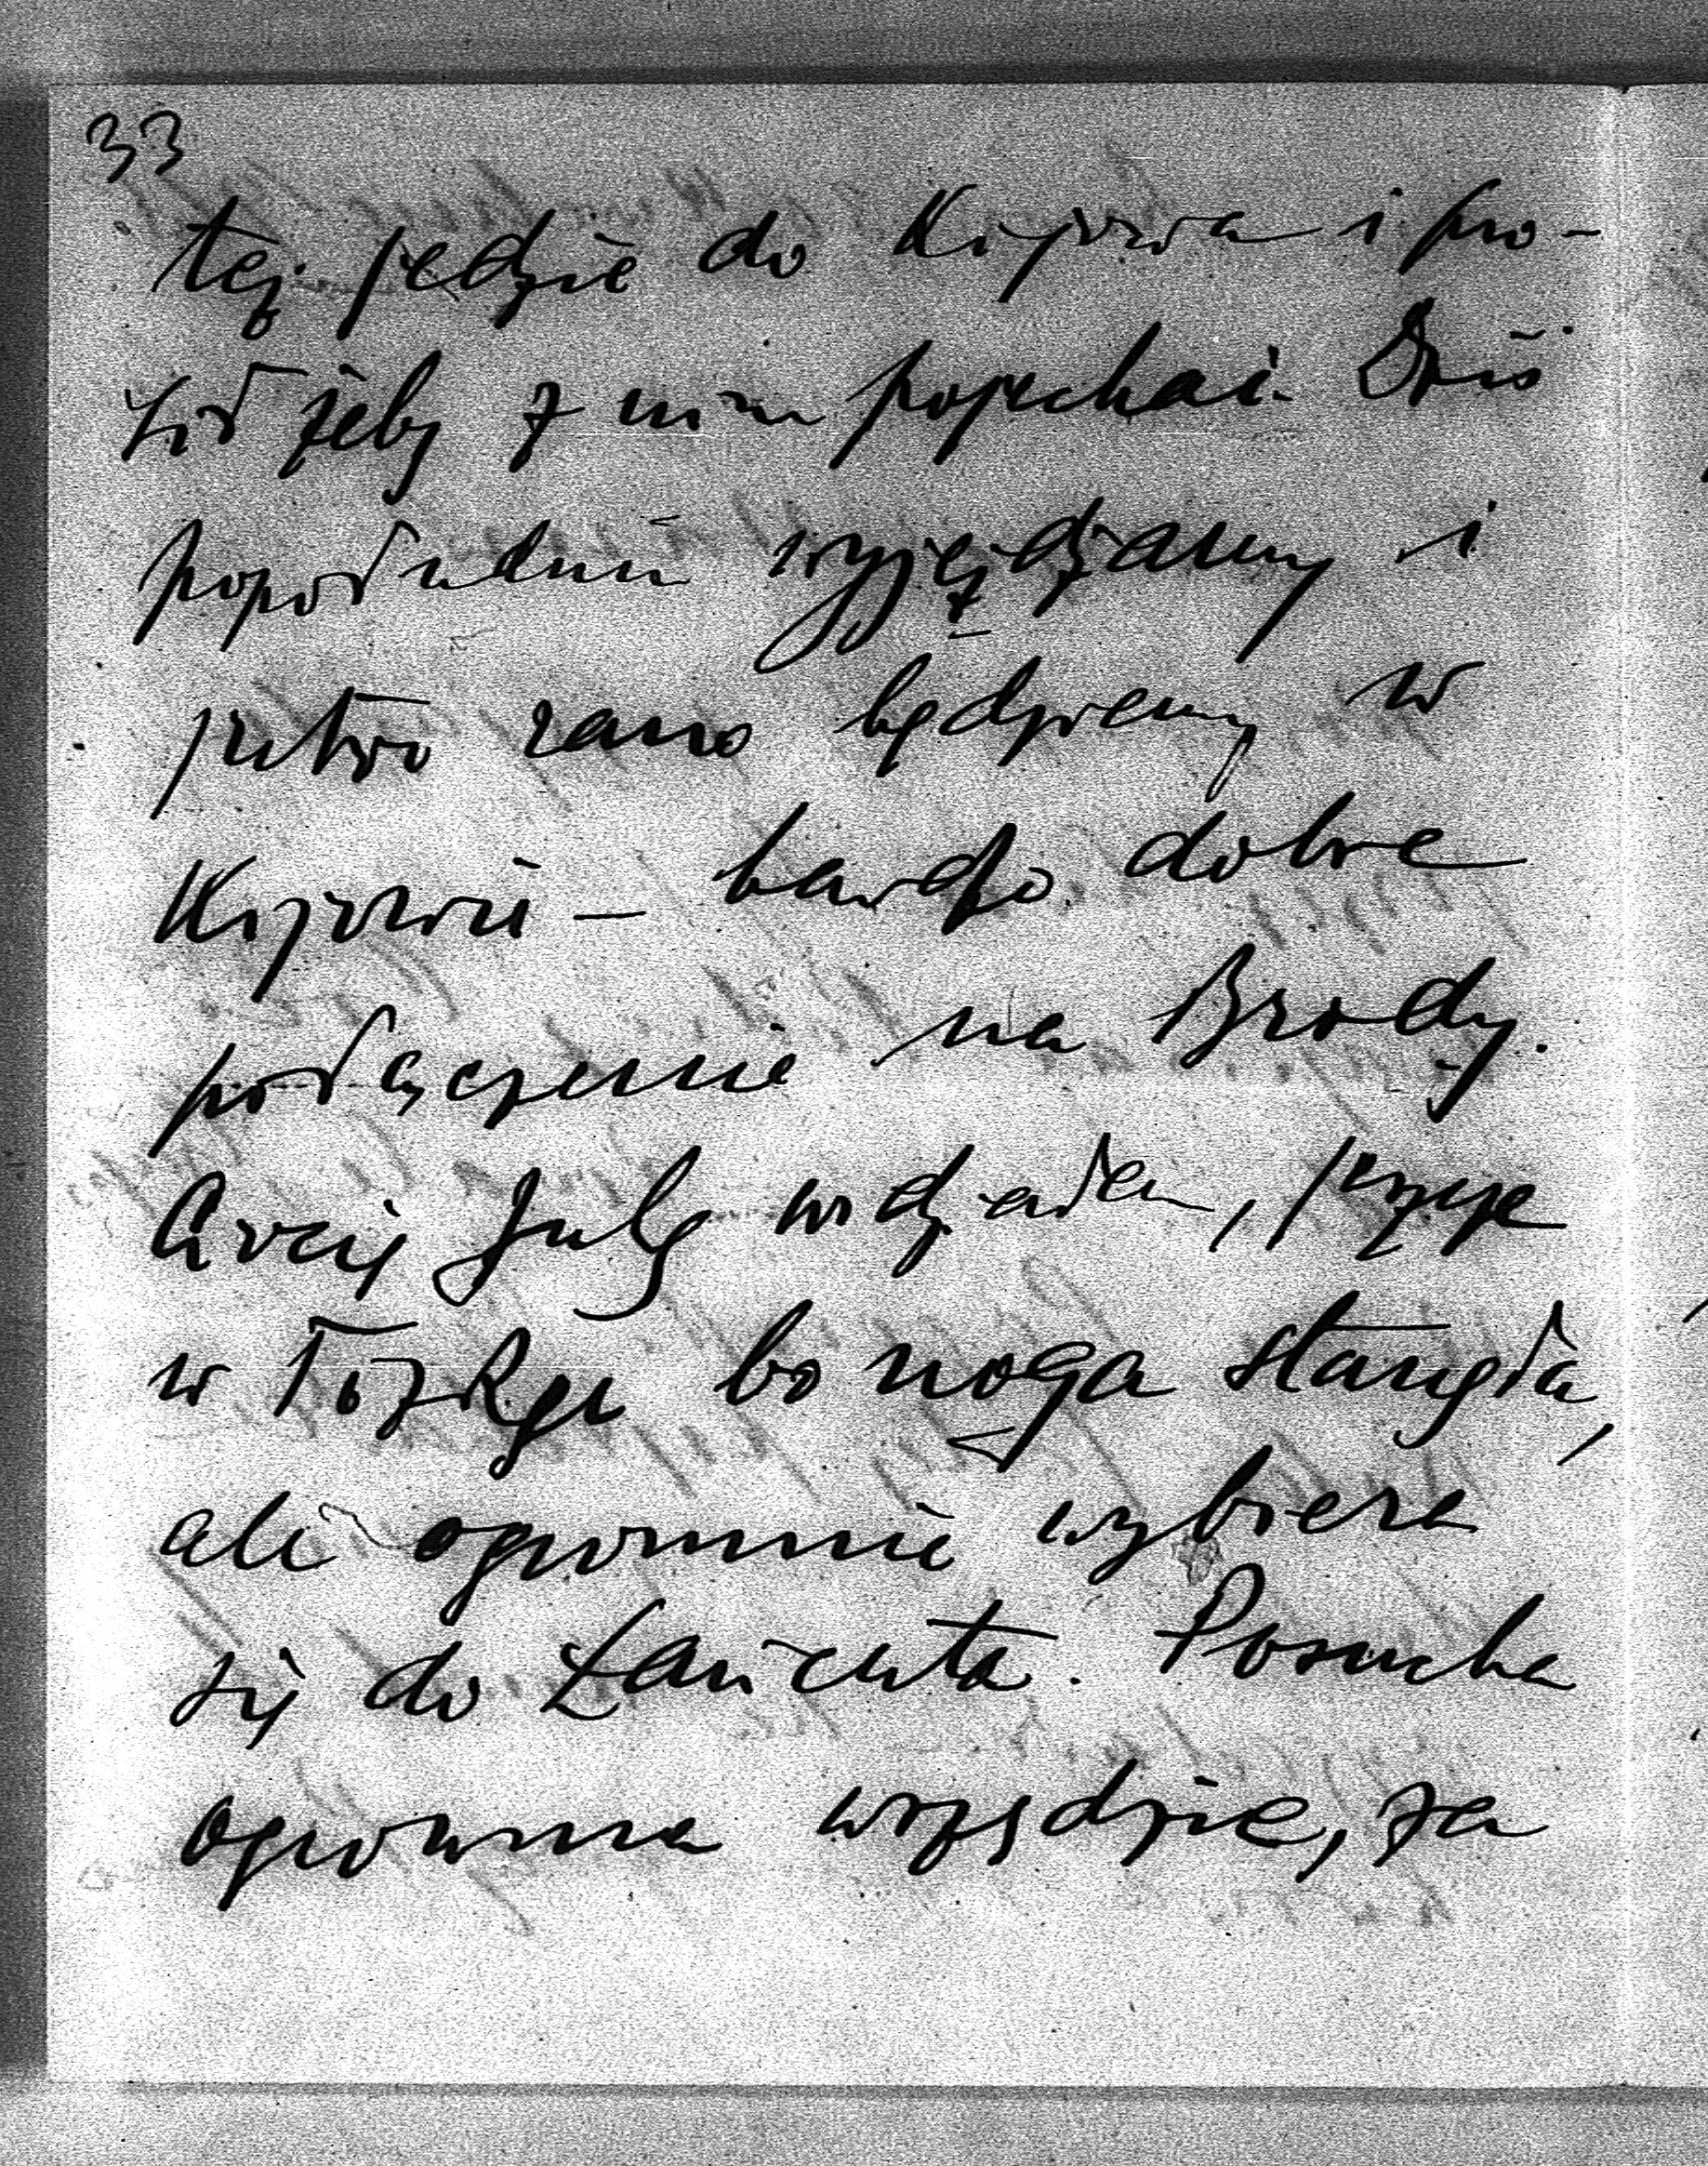 33
też jedzie do Kijowa i pro-
sił żeby z nim pojechać. Dziś
popołudniu wyjeżdżamy i
jutro rano będziemy w
Kijowie – bardzo dobre
połączenie na Brody.
Crcię Julę widziałem, jeszcze
w łóżku bo noga stargła,
ale ogromnie wybiera
się do Łańcuta. Posucha
ogromna wszędzie, za